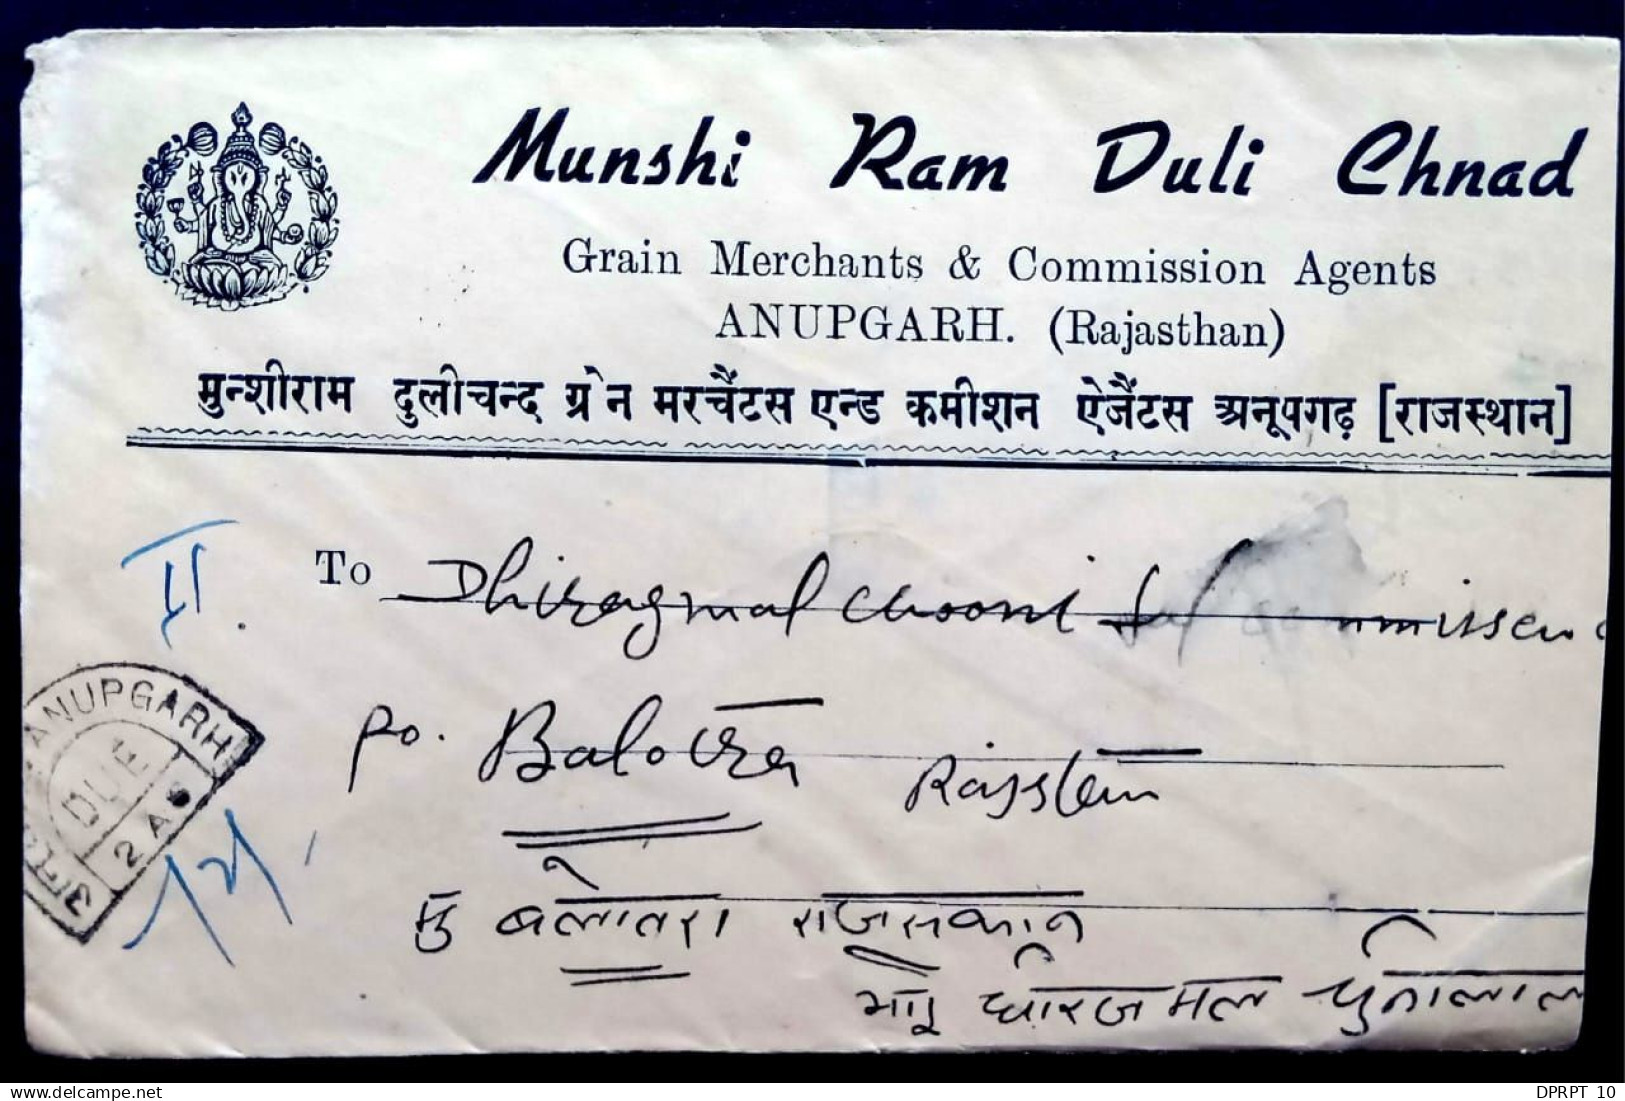 Munshi Ram Duli Chnad
Grain Merchants & Commission Agents
ANUPGARH. (Rajasthan)
मुन्शीराम दुलीचन्द ग्रेन मरचैंटस एन्ड कमीशन ऐजैंटस अनूपगढ़ [राजस्थान]
To Dhiragmal Chooni
Po. Balotra
मु बलोतरा राजसथान
धीरजमल चुनीलाल
ANUPGARH
DUE
2 AS
DPRPT 10